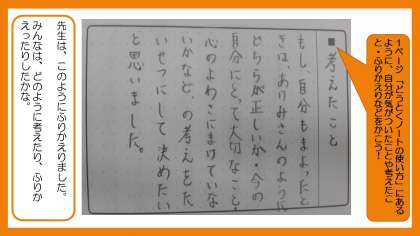 1ページ「どうとくノートの使い方」にある
ように、自分が気がついたことや考えたこ
と・ふりかえりなどをかこう！
■考えたこと
もし自分もまよったと
きは、ありみさんのように
どちらが正しいか・今の
自分にとって大切なこと・
心のよわさにまけていな
いかなど、の考えをた
いせつにして決めたい
と思いました。
先生は、このようにふりかえりました。
みんなは、どのように考えたり、ふりか
えったりしたかな。